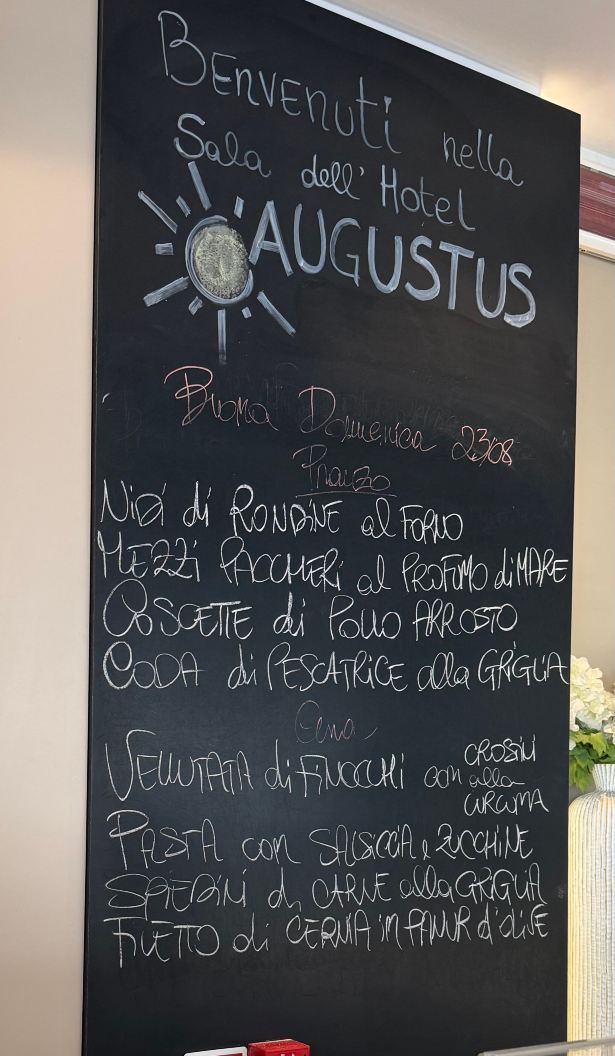 Benvenuti nella
Sala dell'Hotel
AUGUSTUS
Buona Domenica 23/08
Pranzo
Nidi di RONDINE al FORNO
MEZZI PACCHERI al PROFUMO di MARE
COSCETTE di Pollo ARROSTO
CODA di PESCATRICE alla GRIGLIA
Cena
VELLUTATA di FINOCCHI con CROSTINI alla CURCUMA
PASTA con SALSICCIA e ZUCCHINE
SPIEDINI di CARNE alla GRIGLIA
FILETTO di CERNIA in PANUR d'OLIVE